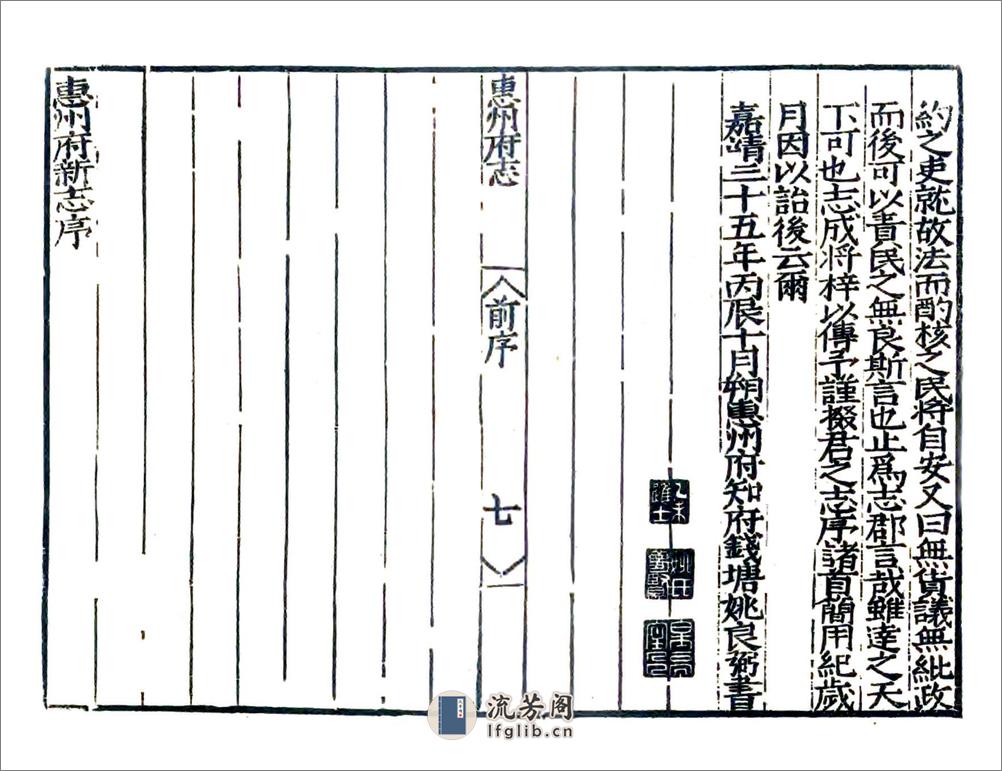 約之吏就故法而酌核之民將自安又曰無貨議無紕政
而後可以責民之無良斯言也止爲志郡言哉雖達之天
下可也志成將梓以傳予謹掇君之志序諸首簡用紀歲
月因以詒後云爾
嘉靖三十五年丙辰十月朔惠州府知府錢塘姚良弼書
乙未
進士
惠州府志
前序
七
惠州府新志序
流芳阁
lfglib.cn